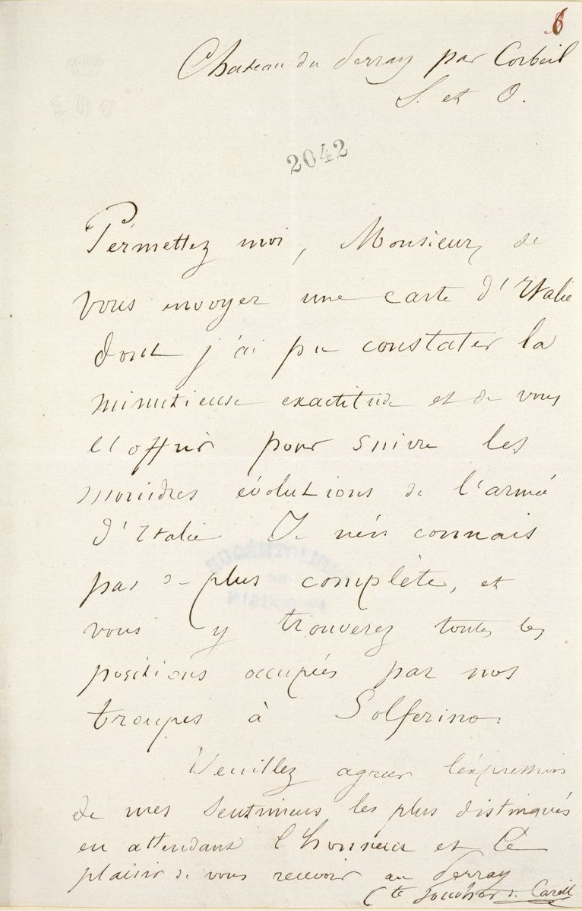 6
Chateau du Perray par Corbeil
S. et O.
2042
Permettez moi, Monsieur, de
vous envoyer une carte d'Italie
dont j'ai pu constater la
minutieuse exactitude et de vous
l'offrir pour suivre les
moindres évolutions de l'armée
d'Italie Je n'en connais
pas de plus complète, et
vous y trouverez toutes les
positions occupées par nos
troupes à Solferino.
Veuillez agréer l'expression
de mes sentiments les plus distingués
en attendant l'honneur et le
plaisir de vous recevoir au Perray
Cte